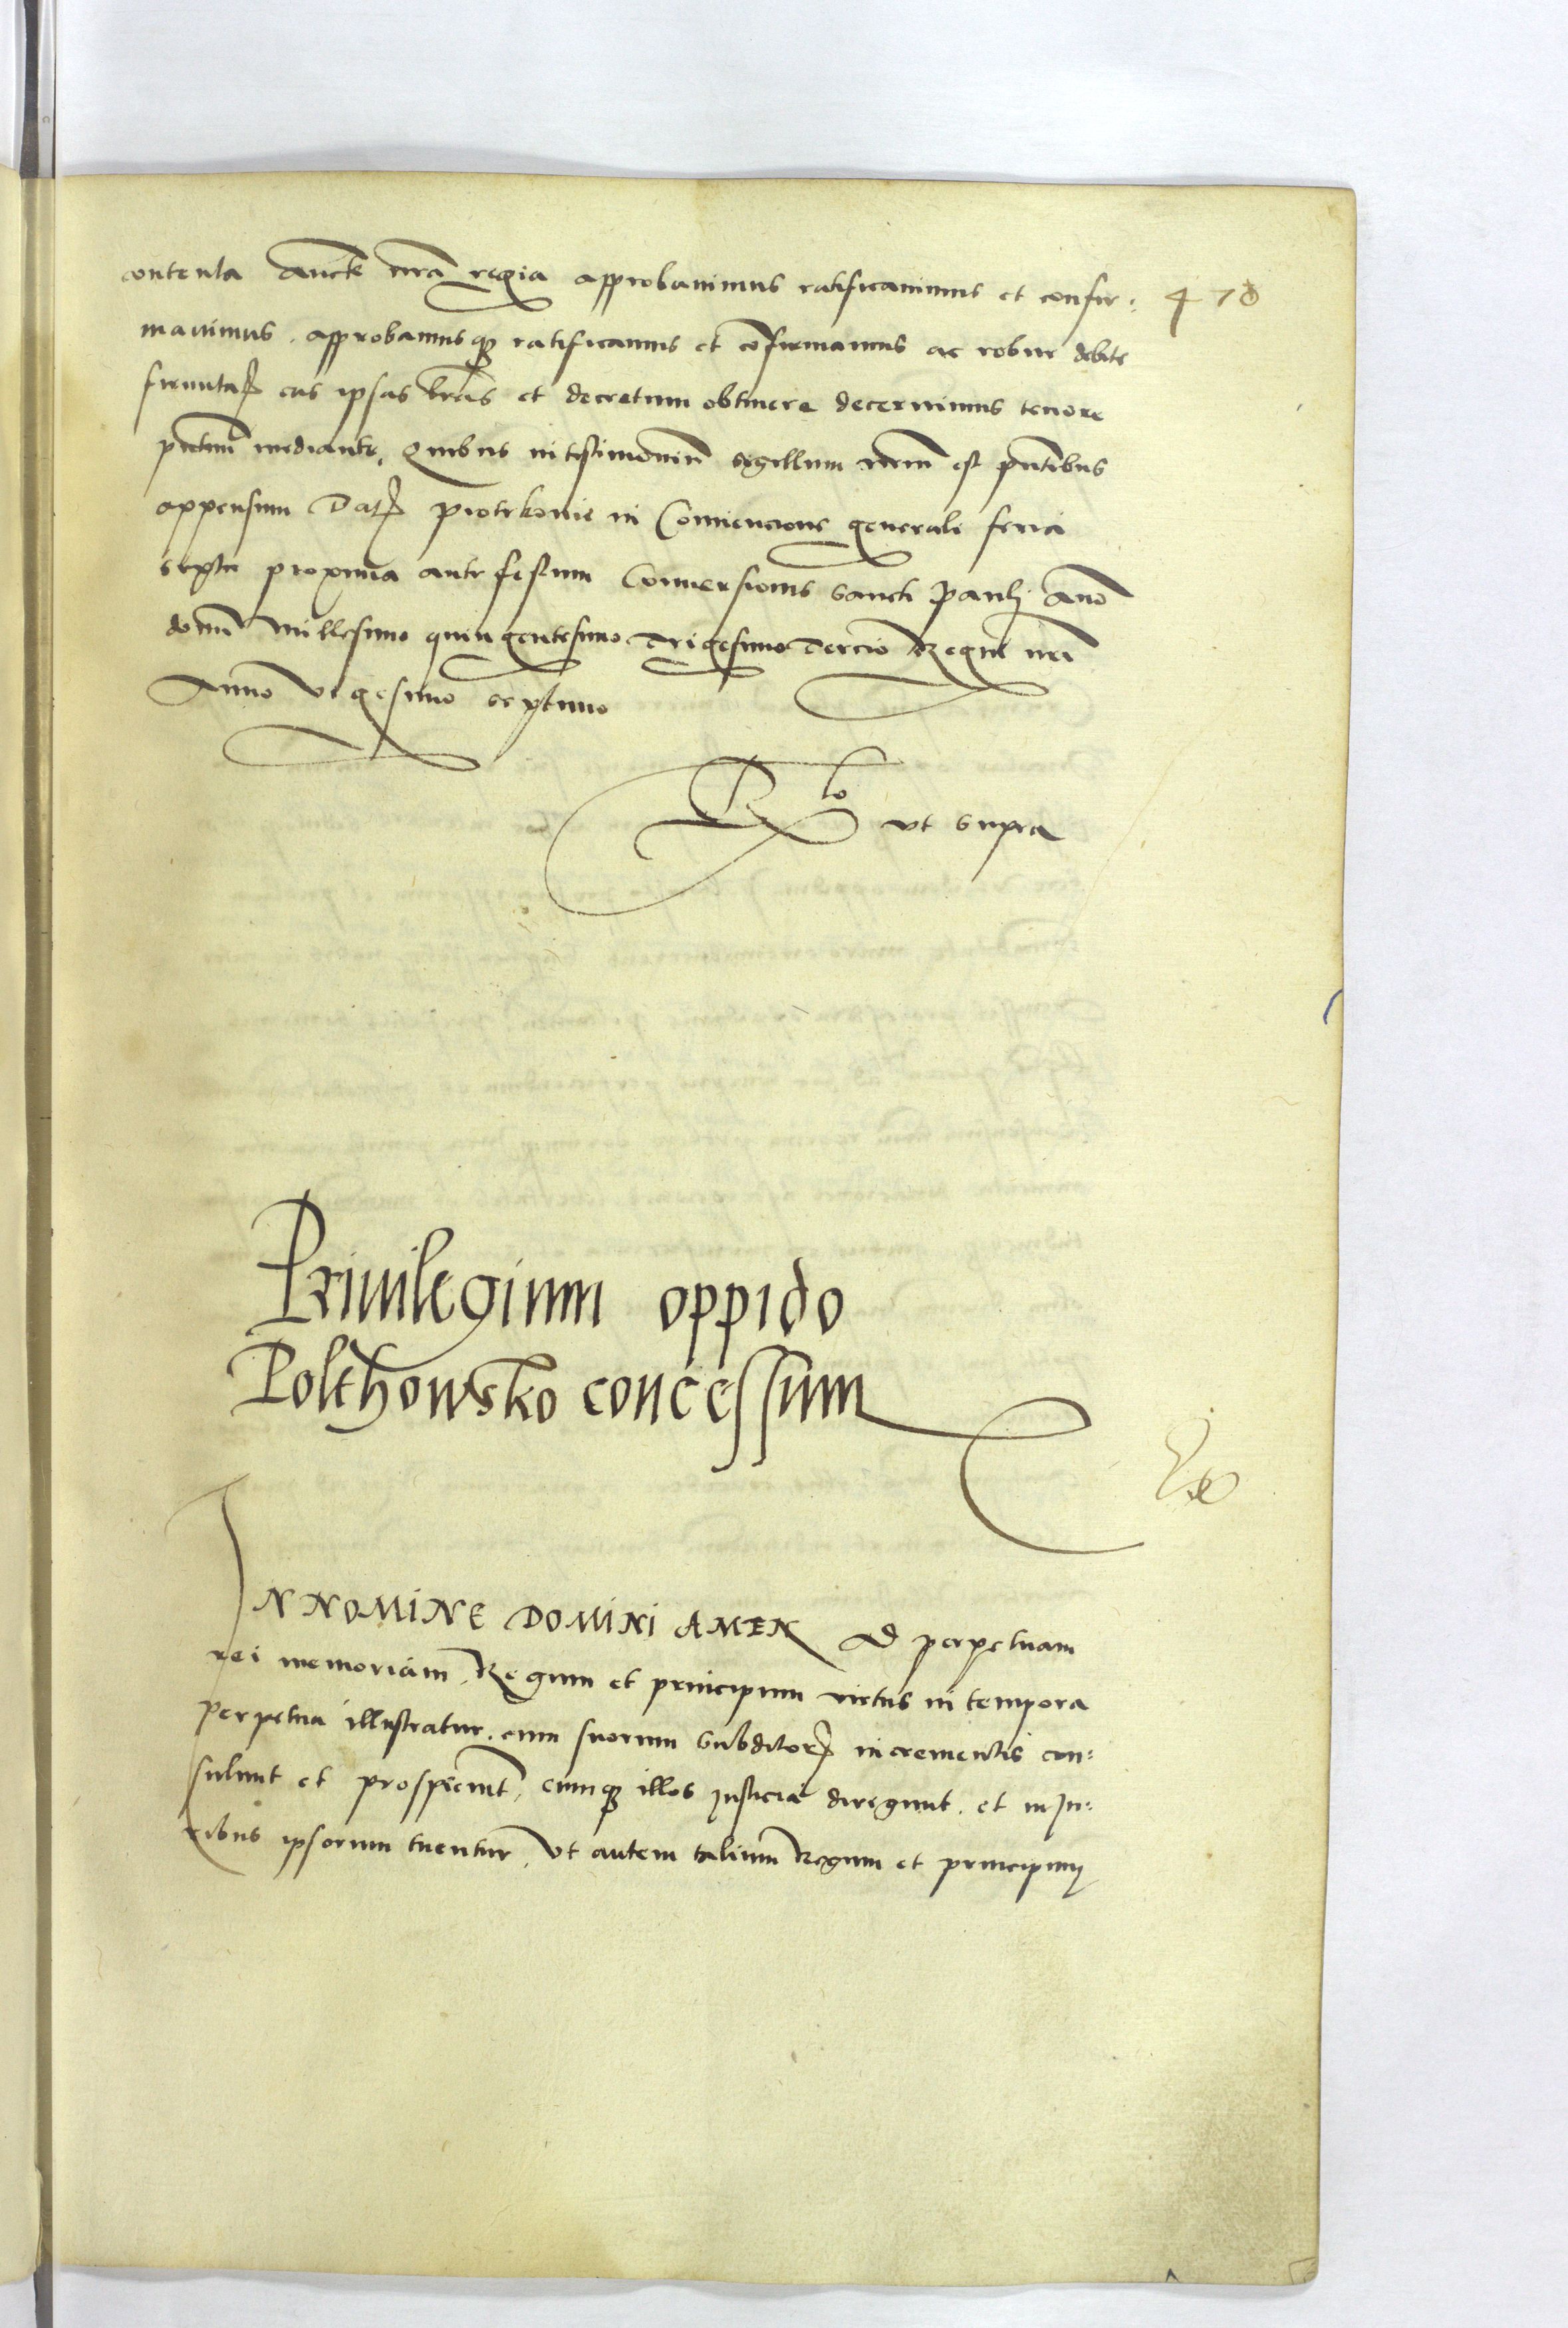 contenta Aucte nra regia approbavimus ratificavimus et confir: 478
mavimus. approbamusq; ratificamus et cofirmamus ac robur debite
firmitat eas ipsas lras et decretum obtinere decernimus tenore
pntium mediante. Quibus in testimoniu sigillum nrum est pntibus
appensum Dat Piotrkovie in Convencione generali feria
sexta proxima ante festum Conversionis sancti Pauli Ano
domi Millesimo quingentesimo Trigesimo Tercio Regni nri
Anno Vigesimo septimo
Rlo vt supra
Privilegium oppido
Polthowsko concessum
IN NOMINE DOMINI AMEN Ad perpetuam
rei memoriam. Regum et principum virtus in tempora
perpetua illustratur. cum suorum subditor incrementis con:
sulunt et prospiciunt, cumq; illos justicia diregunt. et in Ju:
ribus ipsorum tuentur. Vt autem talium Regum et principum